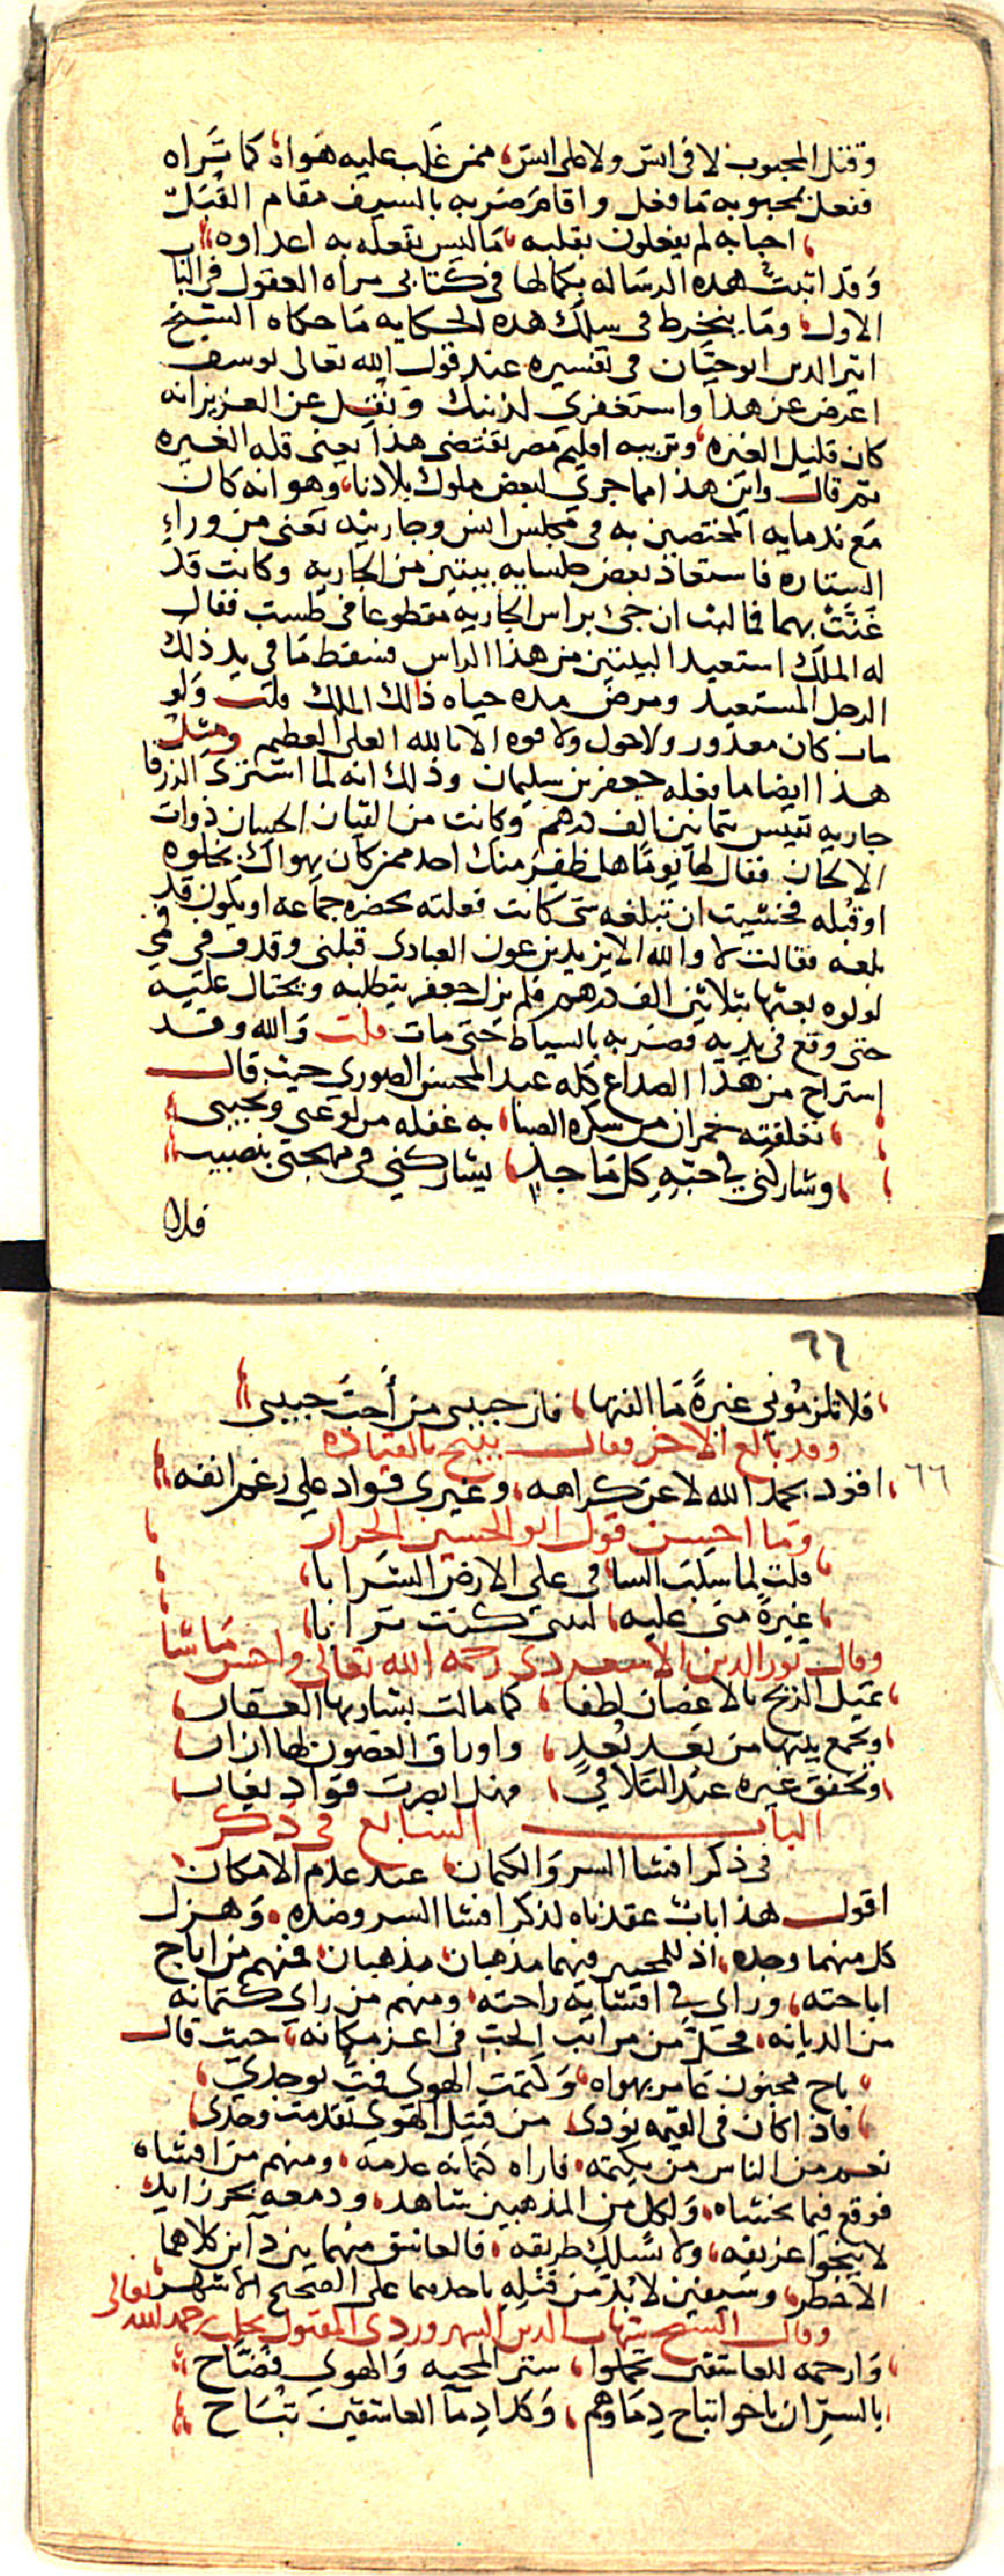 وقتل المحبوب لا في انس ولا على انس، ممن غلب عليه هواه، كما تراه
ففعل بمحبوبه ما فعل واقام ضربه بالسيف مقام القبل
احبابه لم يفعلون بقلبه، ما ليس يفعله به اعداوه
وقد اتبت هذه الرساله بكمالها في كتابي مراه العقول في البا ب
الاول، ومما ينخرط في سلك هذه الحكايه ما حكاه الشيخ
اثير الدين ابو حيان في تفسيره عند قول الله تعالى يوسف
اعرض عن هذا واستغفري لذنبك ونقل عن العزيز انه
كان قليل الغيره، وتربيه اقليم مصر تقتضى هذا يعنى قله الغيره
ثم قال واين هذا مما جرى لبعض ملوك بلادنا، وهو انه كان
مع ندمايه المختصين به في مجلس انس وجاريته تغنى من وراء
الستاره فاستعاد بعض جلسايه بيتين من الجاريه وكانت قد
غنت بهما فما لبث ان جى براس الجاريه مقطوعا في طست فقال
له الملك استعيد البيتين من هذا الراس فسقط ما في يد ذلك
الرجل المستعيد ومرض مده حياه ذالك الملك قلت ولو
مات كان معذور ولا حول ولا قوه الا بالله العلى العظيم ومثل
هذا ايضا ما فعله جعفر بن سليمان وذلك انه لما اشترى الزرقا
جاريه نفيس بثمانين الف درهم وكانت من القيان الحسان ذوات
الالحان فقال لها يوما هل ظفر منك احد ممن كان يهواك بخلوه
او قبله فخشيت ان تبلغه شى كانت فعلته بحضره جماعه او يكون قد
بلغه فقالت لا والله الا يزيد بن عون العبادى قبلنى وقذف في فمى
لولوه بعتها بثلاثين الف درهم فلم يزل جعفر يتطلبه ويحتال عليه
حتى وقع في يديه فضربه بالسياط حتى مات قلت والله وقد
استراح من هذا الصداع كله عبد المحسن الصورى حيث قال
تعلقته خمران من سكره الصبا، به غفله من لوعتى ونحيبى
وشاركنى في حبه كل ماجد، يشاركني في مهجتى بنصيب
فلا
٦٦
فلا تلزموني غيرةً ما الفتها، فان حبيبى من أحب حبيبى
وقد بالغ الاخر فقال يبجح بالقياده
٦٦
اقود بحمد الله لا عن كراهه، وغيرى قواد على رغم انفه
وما احسن قول ابو الحسين الجزار
قلت لما سكب السا، قى على الارض الشرابا
غيرةً منى عليه، ليتنى كنت ترابا
وقال نور الدين الاسعردى رحمه الله تعالى واحسن ما شا
تميل الريح بالاغصان لطفا، كما مالت بشاربها العقار
وتجمع بينها من بعد بعد، واوراق الغصون لها ازار
وتخفق غيره عند التلاقي، فهل ابصرت قواد يغار
الباب السابع في ذكر
في ذكر افشا السر والكتمان عند عدم الامكان
اقول هذا باب عقدناه لذكر افشا السر وضده، وهزل
كل منهما وجده، اذ للمحبين فيهما مذهبان مذهبان، فمنهم من اباح
اباحته، وراى في افشايه راحته، ومنهم من راى كتمانه
من الديانه، فحل من مراتب الحب في اعز مكانه، حيث قال
باح مجنون عامر بهواه، وكتمت الهوى فمت بوجدى
فاذا كان في القيمه نودى من قتيل الهوى تقدمت وحدى
نعم من الناس من يكتمه، فاراه كتمانه عدمه، ومنهم من افشاه
فوقع فيما يخشاه، ولكل من المذهبين شاهد، ودمعه بحر زايد
لا ينجوا غريقه، ولا تسلك طريقه، فالعاشق منهما بين دآين كلاهما
الاخطر، وسيفين لابد من قتله باحدهما على الصحيح الاشهر
وقال الشيخ شهاب الدين السهروردى المقتول بحلب رحمه الله تعالى
وارحمه للعاشقين تحملوا، ستر المحبه والهوى فضاح
بالسر ان باحوا تباح دماوهم، وكذا دمآ العاشقين تباح